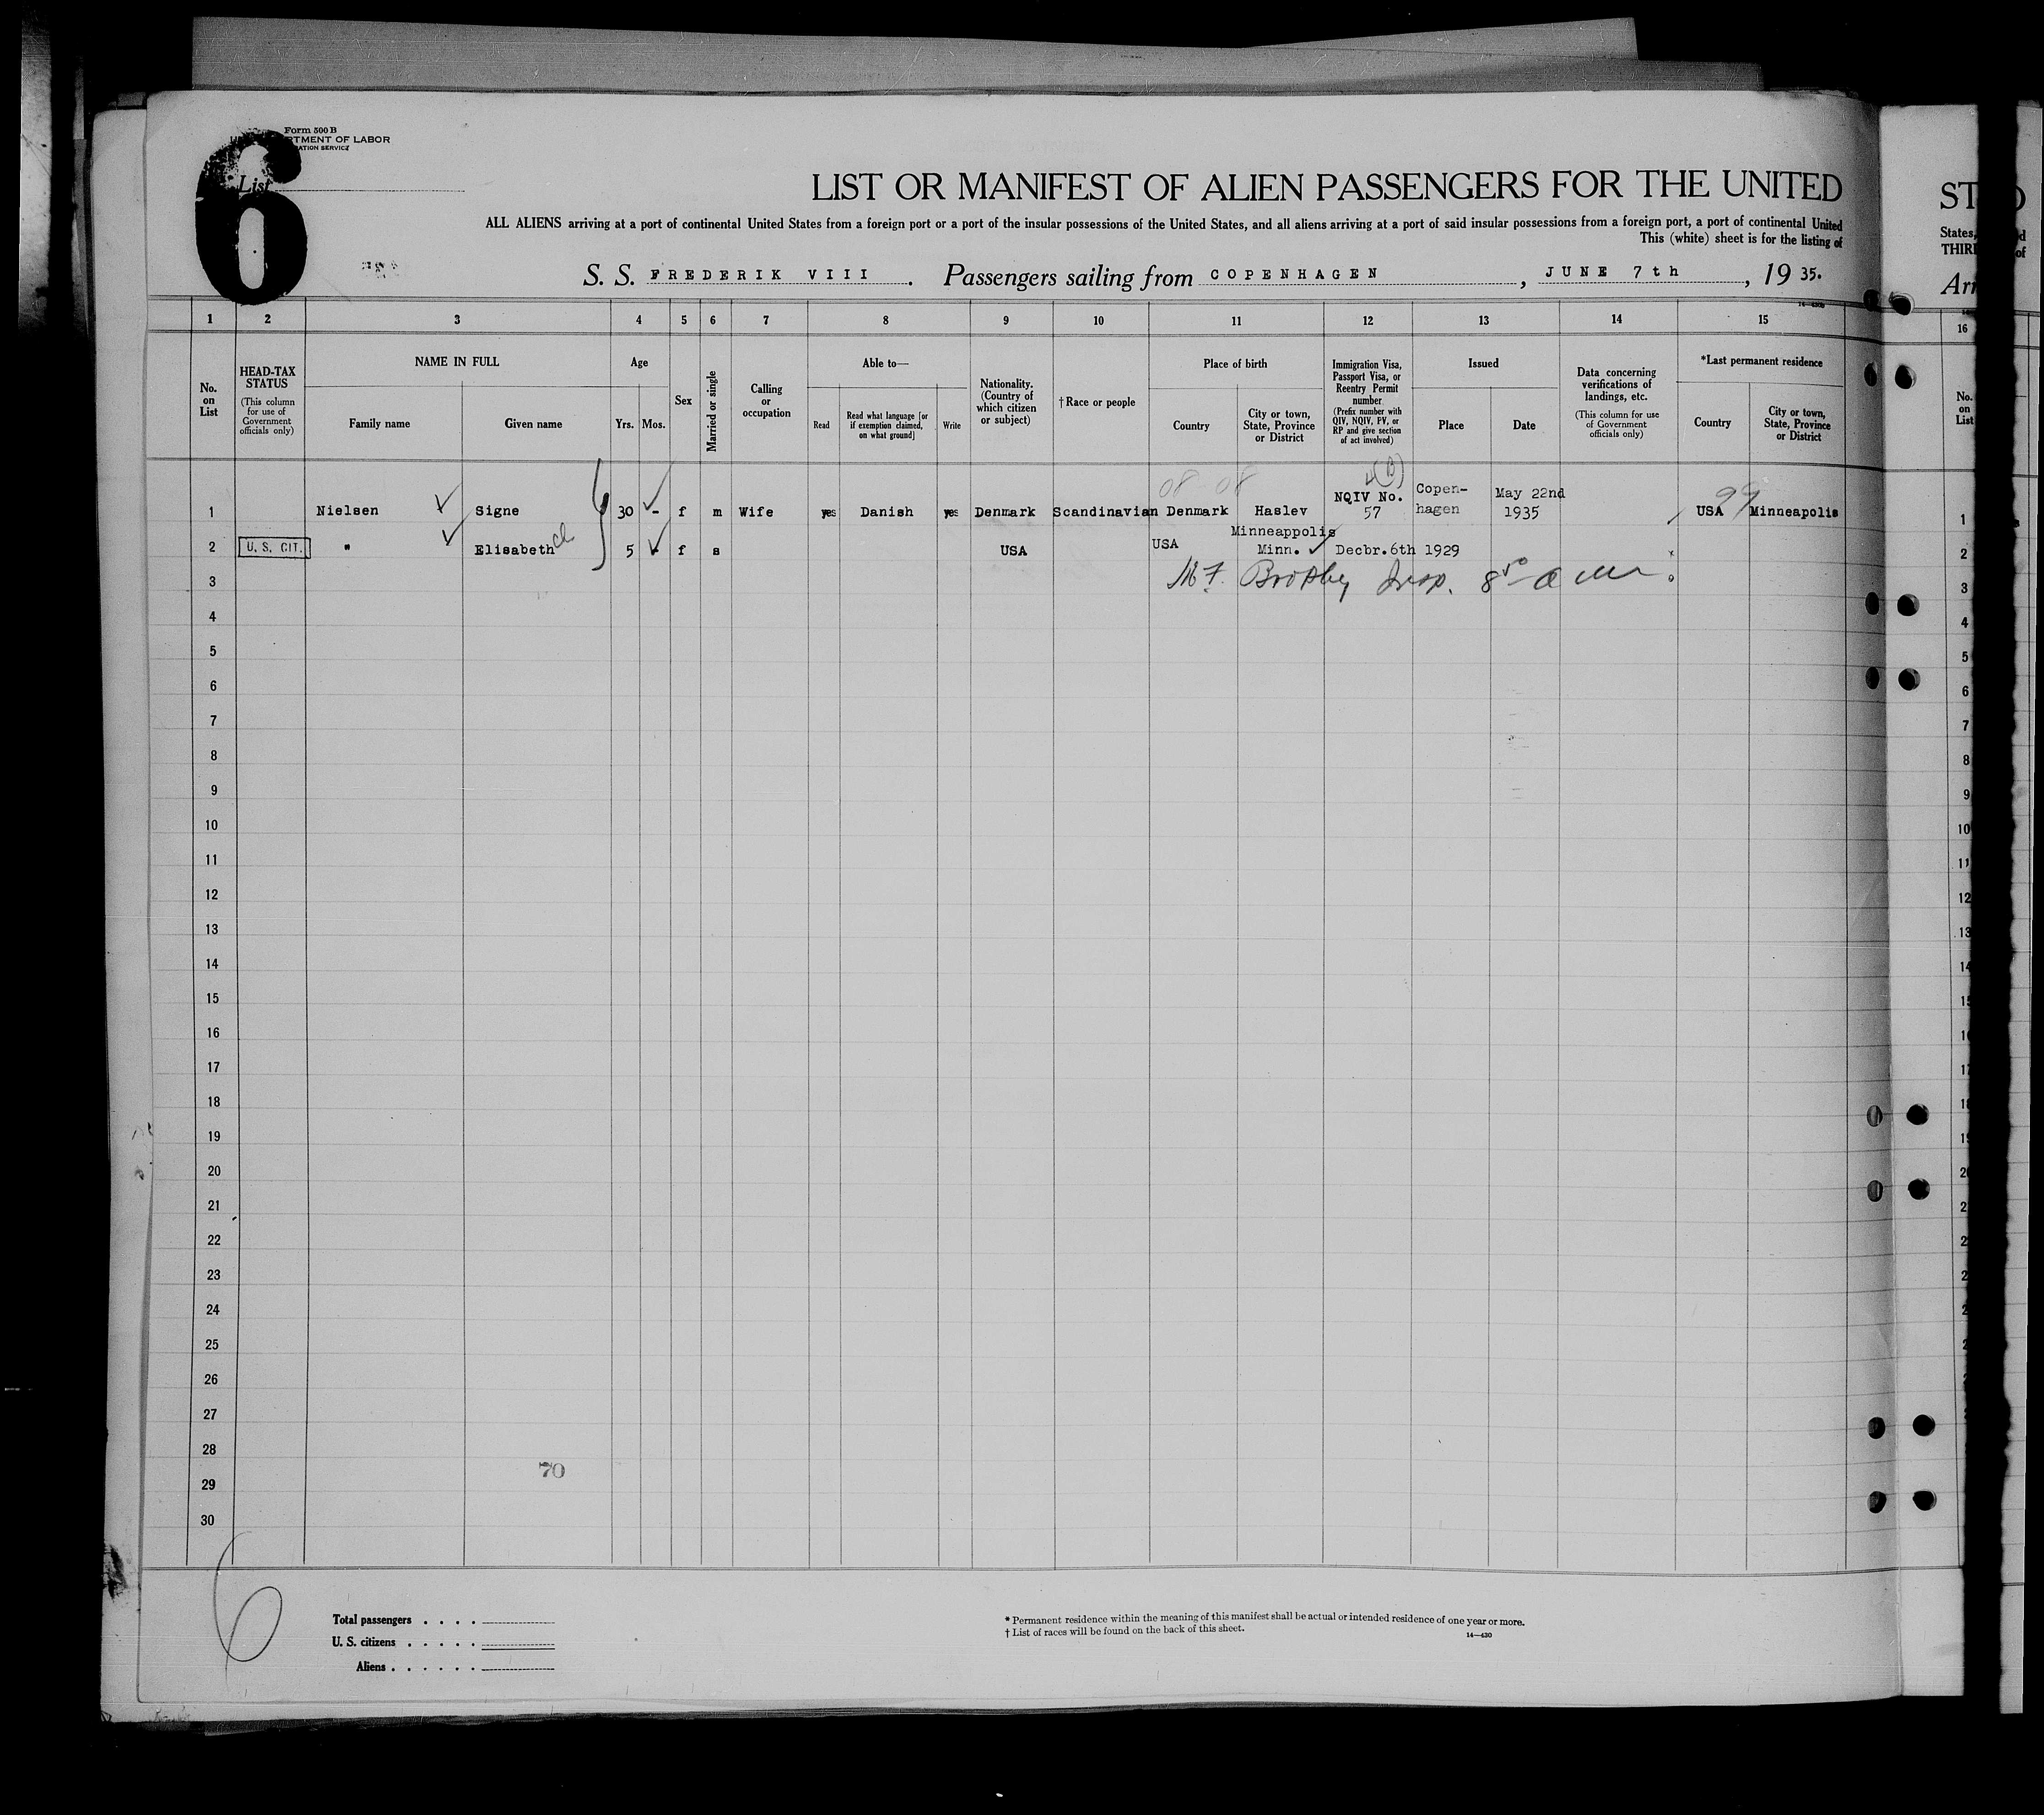 Form 500 B
RTMENT OF LABOR
ATION SERVICE
6
List
LIST OR MANIFEST OF ALIEN PASSENGERS FOR THE UNITED
ST
ALL ALIENS arriving at a port of continental United States from a foreign port or a port of the insular possessions of the United States, and all aliens arriving at a port of said insular possessions from a foreign port, a port of continental United
States,
This (white) sheet is for the listing of
of
S. S. FREDERIK VIII . Passengers sailing from COPENHAGEN , JUNE 7th , 19 35.
1 2 3 4 5 6 7 8 9 10 11 12 13 14 15 16
No. on List
HEAD-TAX STATUS
(This column for use of Government officials only)
NAME IN FULL
Family name Given name
Age
Yrs. Mos.
Sex
Married or single
Calling or occupation
Able to—
Read
Read what language [or if exemption claimed, on what ground]
Write
Nationality. (Country of which citizen or subject)
†Race or people
Place of birth
Country
City or town, State, Province or District
Immigration Visa, Passport Visa, or Reentry Permit number
(Prefix number with QIV, NQIV, PV, or RP and give section of act involved)
Issued
Place Date
Data concerning verifications of landings, etc.
(This column for use of Government officials only)
*Last permanent residence
Country
City or town, State, Province or District
No. on List
08 08 4(B) 99
1 Nielsen Signe 30 - f m Wife yes Danish yes Denmark Scandinavian Denmark Haslev NQIV No. 57 Copen-hagen May 22nd 1935 USA Minneapolis 1
2 U. S. CIT. " Elisabeth 5 - f s USA USA Minneappolis Minn. Decbr.6th 1929 2
3 3
4 4
5 5
6 6
7 7
8 8
9 9
10 10
11 11
12 12
13 13
14 14
15 15
16
17
18
19
20 20
21
22
23
24
25
26
27
28
70
29
30
6
Total passengers . . . .
U. S. citizens . . . . .
Aliens . . . . . .
* Permanent residence within the meaning of this manifest shall be actual or intended residence of one year or more.
† List of races will be found on the back of this sheet.
14—430